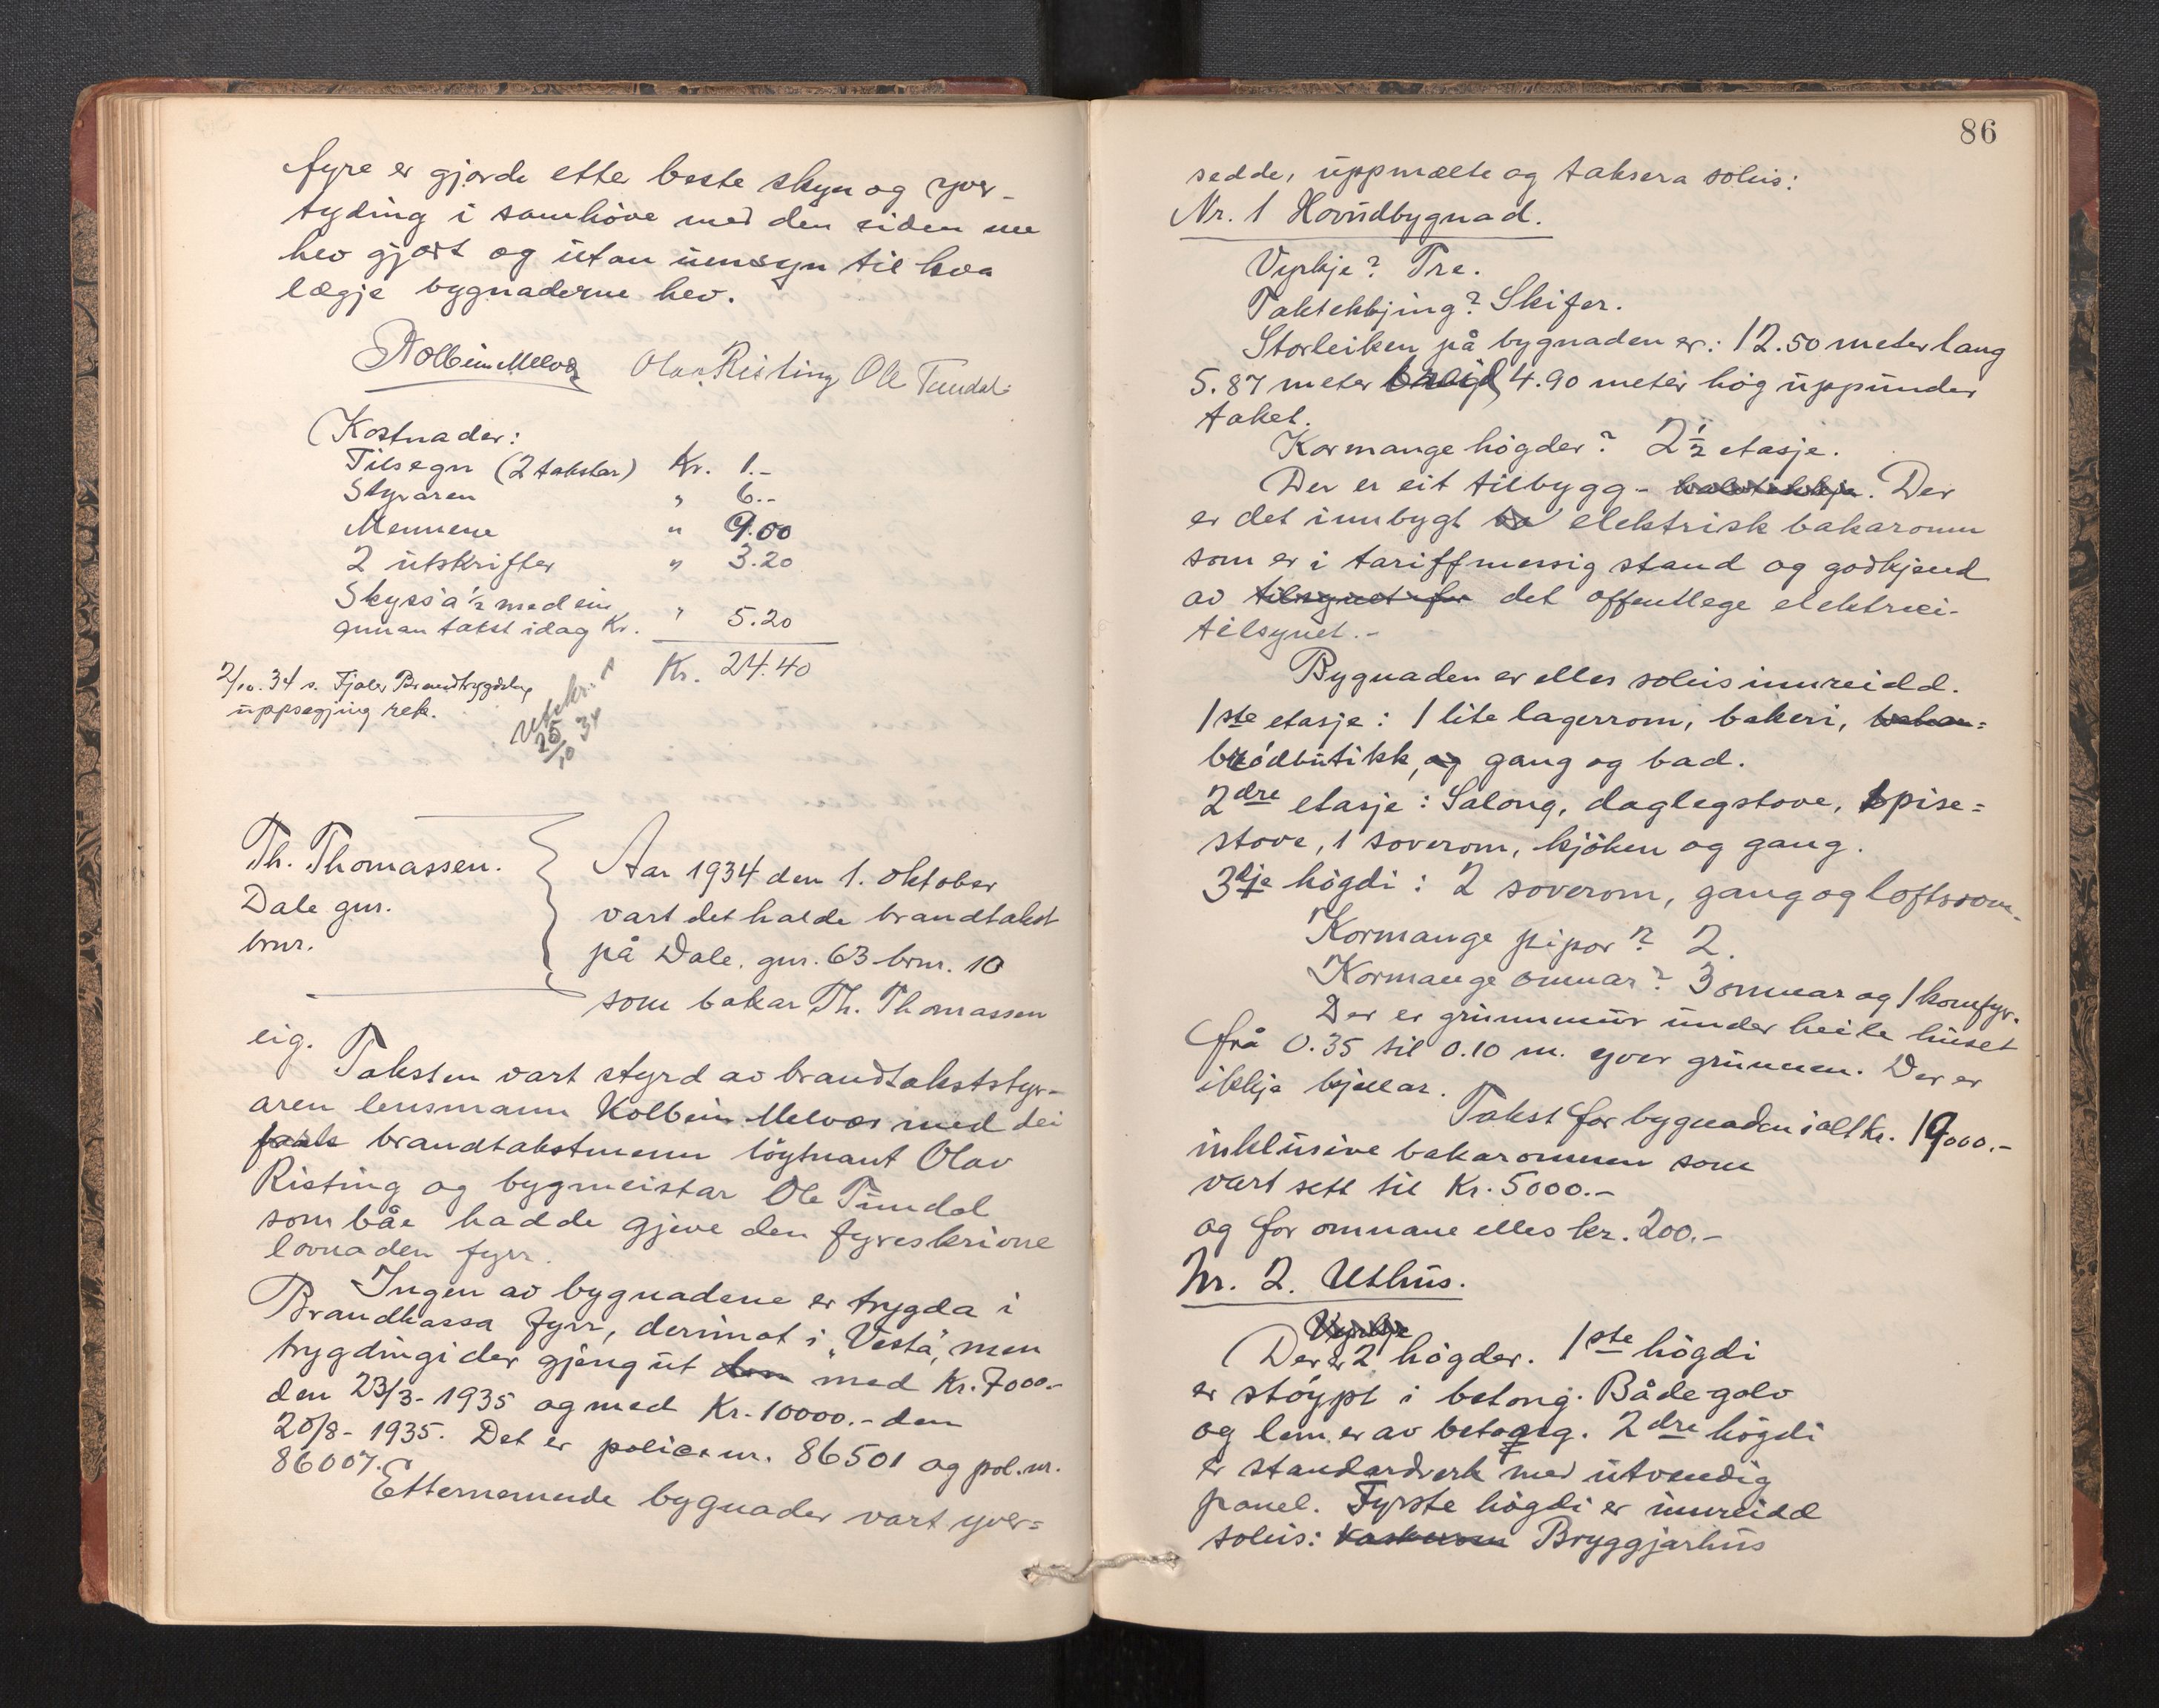 fyre er gjorde etter beste skyn og yver-
tyding i samhöve med den eiden me
hev gjort og utan umsyn til kva
lægje bygnaderne hev.
Kolbein Melvær Olav Risting Ole Tundal
Kostnader:
Tilsegn (2 takstar) Kr. 1.-
Styraren " 6.-
Mennene " 9.00
2 utskrifter " 3.20
Skyss a 1/2 med ein
annan takst idag Kr. " 5.20
Kr. 24.40
2/10.34 s. Fjaler Brandtrygdelag
uppsegjing rek.
Utskr.
25/10 34
Th. Thomassen.
Dale gnr.
bnr.
Aar 1934 den 1. oktober
vart det halde brandtakst
på Dale, gnr. 63 brnr. 10
som bakar Th. Thomassen
eig.
Taksten vart styrd av brandtakststyr-
aren lensmann Kolbein Melvær med dei
brandtakstmenn löytnant Olav
Risting og bygmeistar Ole Tundal
som båe hadde gjeve den fyreskrivne
lovnaden fyrr.
Ingen av bygnadene er trygda i
Brandkassa fyrr, derimot i "Vesta", men
trygdingi der gjeng ut den med Kr. 7000.-
den 23/3- 1935 og med Kr. 10000.- den
20/8- 1935. Det er police nr. 86501 og pol. nr.
86007.
Etternemnde bygnader vart yver=
86
sedde, uppmælte og taksera soleis:
Nr. 1 Hovudbygnad.
Vyrkje? Tre.
Taktekkjing? Skifer.
Storleiken på bygnaden er: 12.50 meter lang
5.87 meter breid, 4.90 meter hög uppunder
taket.
Kormange högder? 2 1/2 etasje.
Der er eit tilbygg - . Der
er det innbygt ba elektrisk bakaromn
som er i tariffmessig stand og godkjend
av tilsynet for det offentlege elektrici-
tilsynet.-
Bygnaden er elles soleis innreidd.
1ste etasje: 1 lite lagerrom, bakeri, bakar=
brödbutikk, og gang og bad.
2dre etasje: Salong, daglegstove, spise=
stove, 1 soverom, kjöken og gang.
3dje högdi: 2 soverom, gang og loftsrom.
Kormange pipor? 2.
Kormange omnar? 3 omnar og 1 komfyr.
Der er grunnmur under heile huset
frå 0.35 til 0.10 m. yver grunnen. Der er
ikkje kjellar.
Takst for bygnaden i alt kr. 19000.-
inklusive bakaromnen som
vart sett til Kr. 5000.-
og for omnane elles kr. 200.-
Nr. 2. Uthus.
Vyrkje
Der er 2 högder. 1ste högdi
er stöypt i betong. Både golv
og lem er av betong. 2dre högdi
er standardverk med utvendig
panel. Fyrste högdi er innreidd
soleis: Bryggjarhus